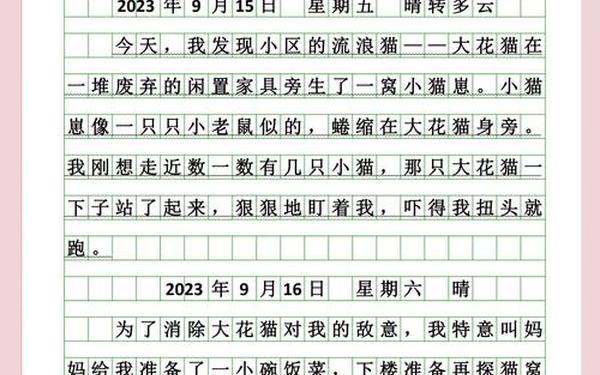 2023年9月15日 星期五 晴转多云
今天，我发现小区的流浪猫——大花猫在
一堆废弃的闲置家具旁生了一窝小猫崽。小猫
崽像一只只小老鼠似的，蜷缩在大花猫身旁。
我刚想走近数一数有几只小猫，那只大花猫一
下子站了起来，狠狠地盯着我，吓得我扭头就
跑。
2023年9月16日 星期六 晴
为了消除大花猫对我的敌意，我特意叫妈
妈给我准备了一小碗饭菜，下楼准备再探猫窝